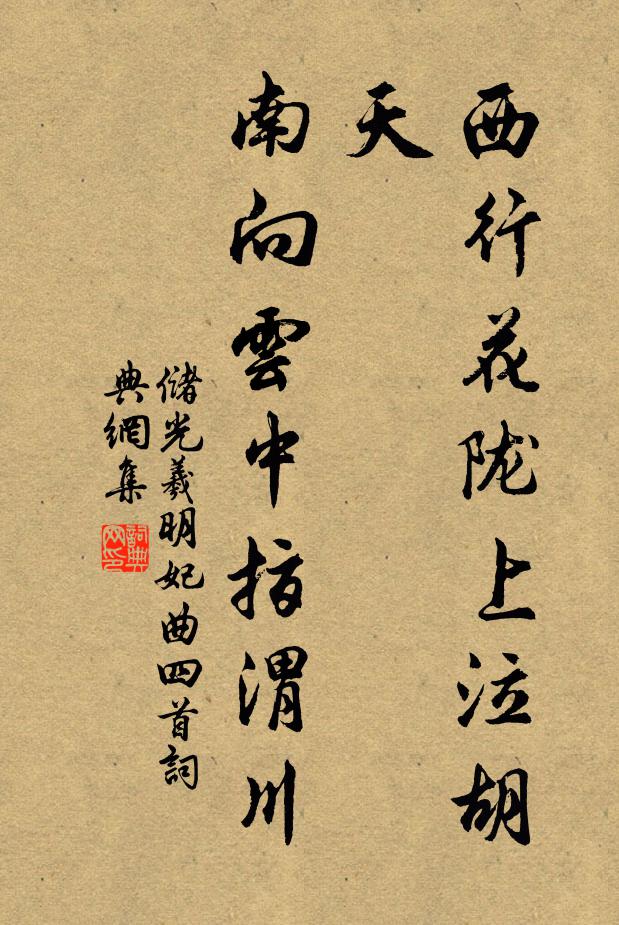 西行花陇上泣胡
天
南向雲中指渭川
儲光羲明妃曲四首詞
典網集
詞典
网印